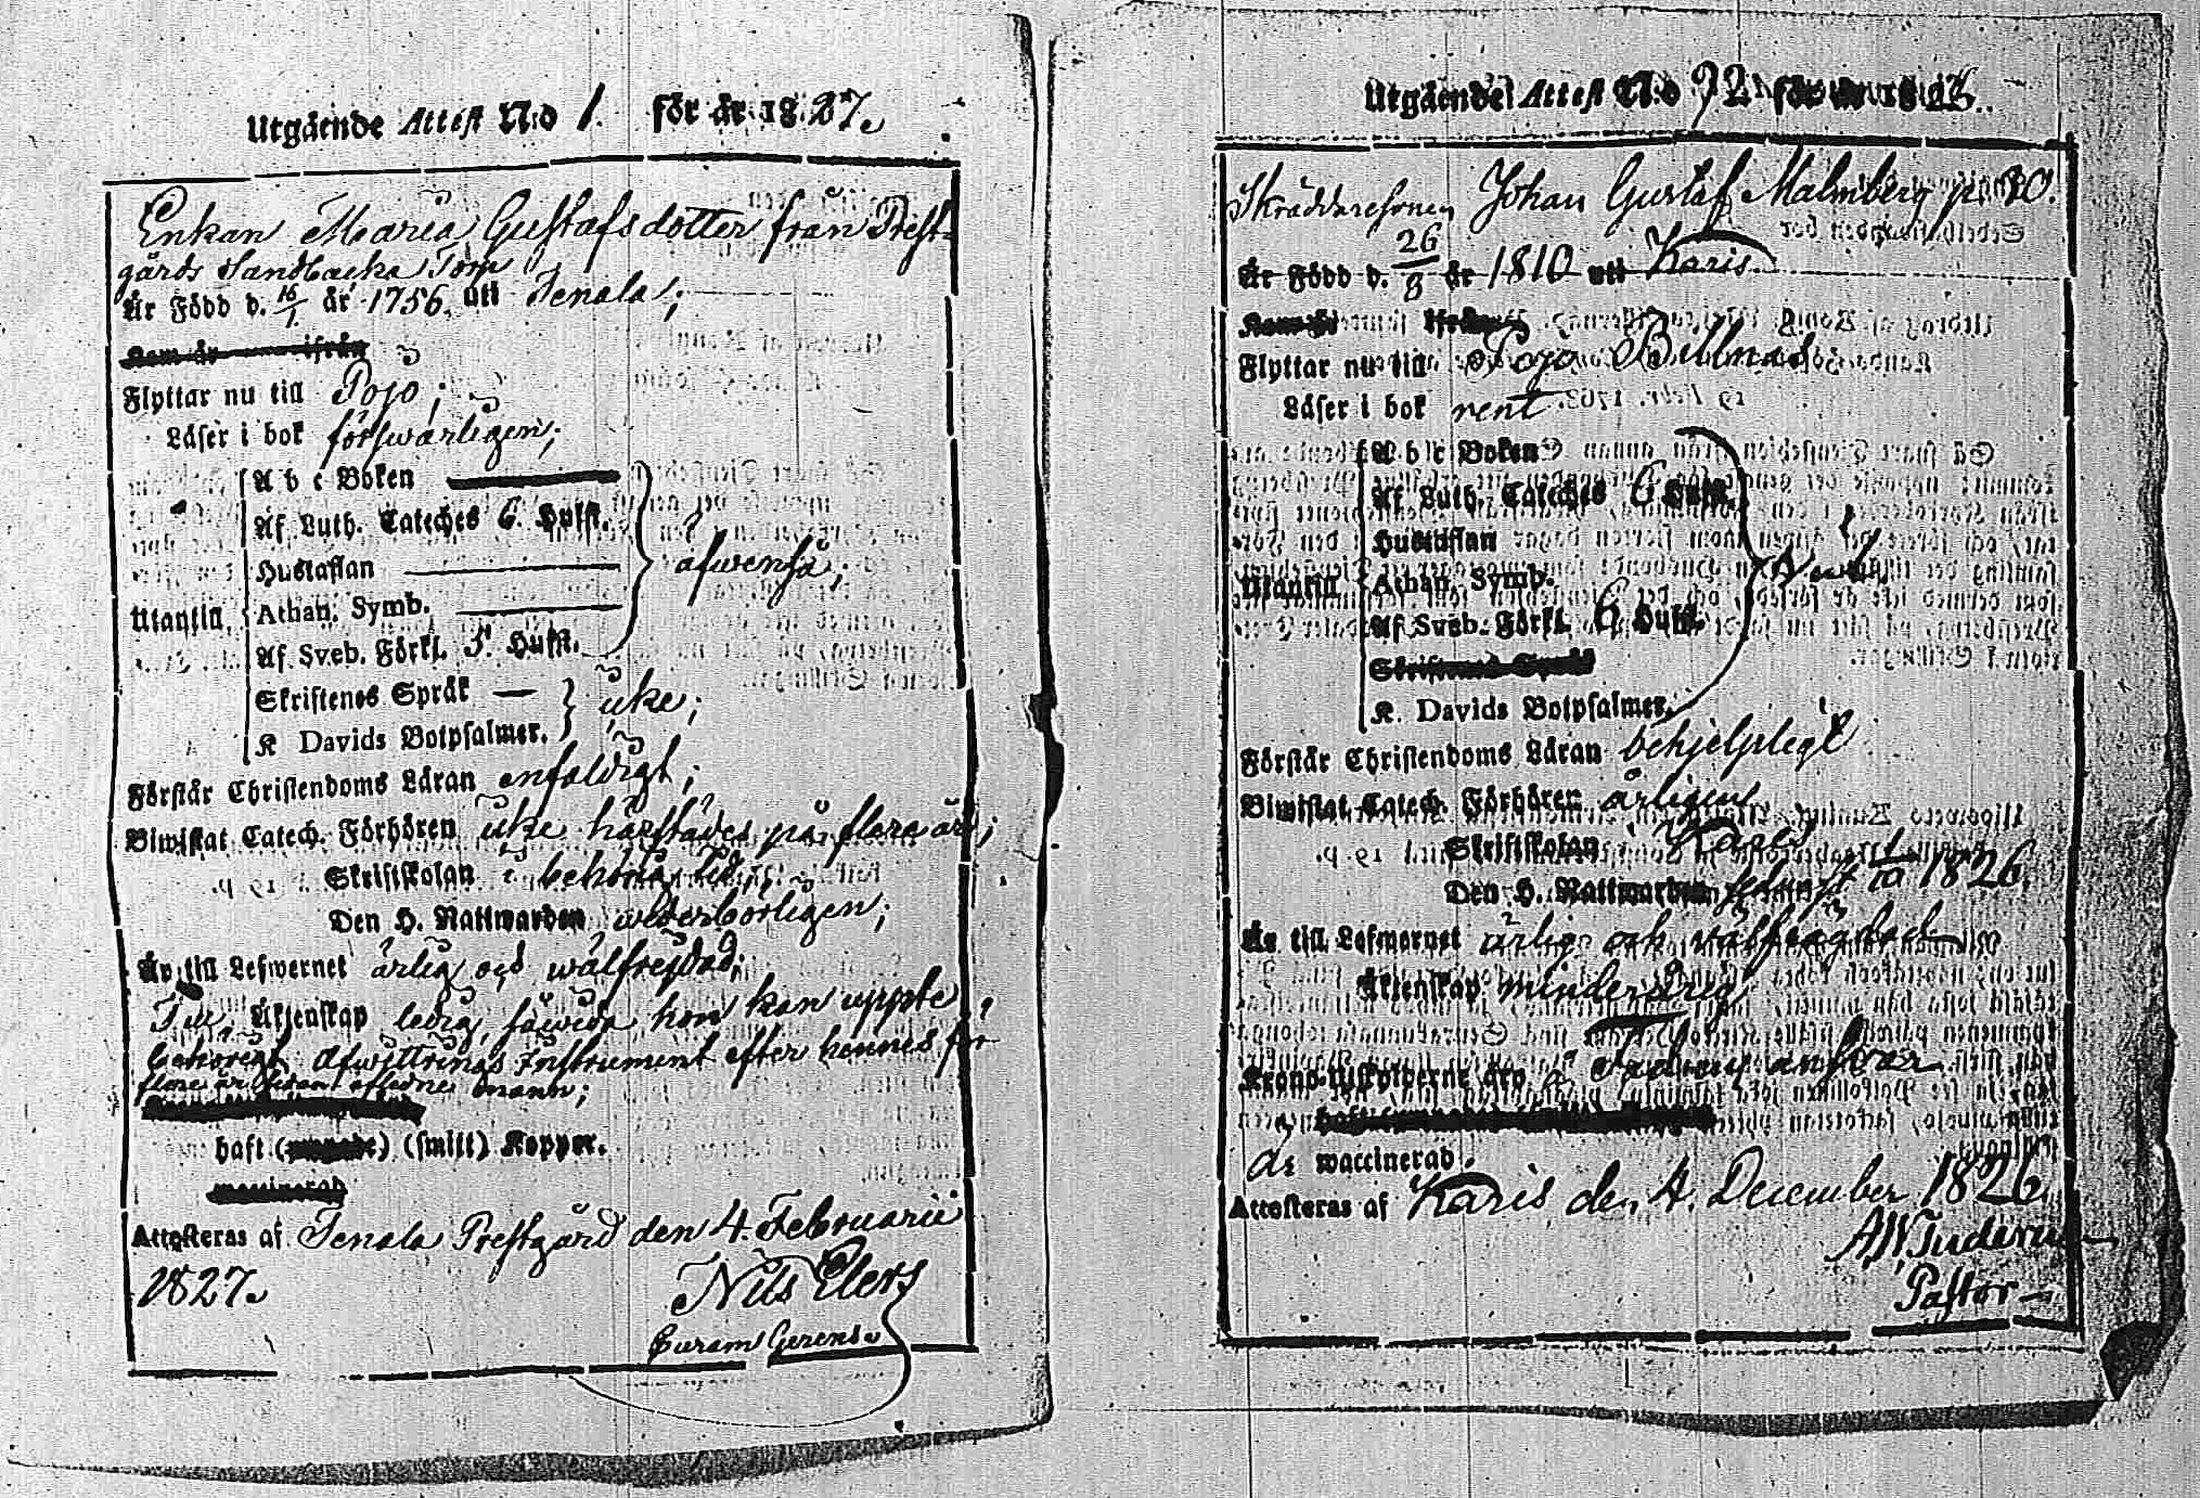 Utgående Attest N:o 1. för år 1827.
Enkan Maria Gustafsdotter från Prest-
gårds Sandbacka Torp
Är Född d. 16/1. år 1756. uti Tenala;
Flyttar nu till Pojo;
Läser i bok försvarligen;
A b c Boken
Af Luth. Cateches 6. Hufst.
Hustaflan
äfwenså;
Utantill
Athan. Symb.
Af Sveb. Förkl. 5. Hufst.
Skriftenes Språk
icke;
K Davids Botpsalmer.
Förstår Christendoms Läran enfaldigt;
Biwistat Catech. Förhören icke härstädes på flera år;
Skriftskolan i behörig tid,
Den H. Nattwarden wederbörligen;
Är till Lefwernet ärlig och wälfrejdad;
Till Äktenskap ledig, såwida hon kan uppte
behörigt Afwittrings Instrument efter hennes för
flere år sedan afledne mann;
haft (smitt) Koppor.
Attesteras af Tenala Prestgård den 4. Februarii
1827.
Nils
Curam Gerens.
Utgående Attest N:o 92 för år 1826.
Skräddaresonen Johan Gustaf Malmberg p. 80.
Är Född d. 26/8 år 1810 uti Karis.
Flyttar nu till Pojo Billnäs.
Läser i bok rent
A b c Boken
Af Luth. Cateches 6 Hufst.
Hustaflan
Utantill
Athan. Symb.
Af Sveb. Förkl. 6 Hufst.
K. Davids Botpsalmer.
Förstår Christendoms Läran behjelpligt
Biwistat Catech. Förhören årligen
Skriftskolan i Karis
Den H. Nattwarden sednast 1826.
Är till Lefwernet ärlig och wälfrägdad
Äktenskap minderårig
Krono-Utskylderne äro å Fadrens answar
är waccinerad.
Attesteras af Karis den 4. December 1826.
Pastor